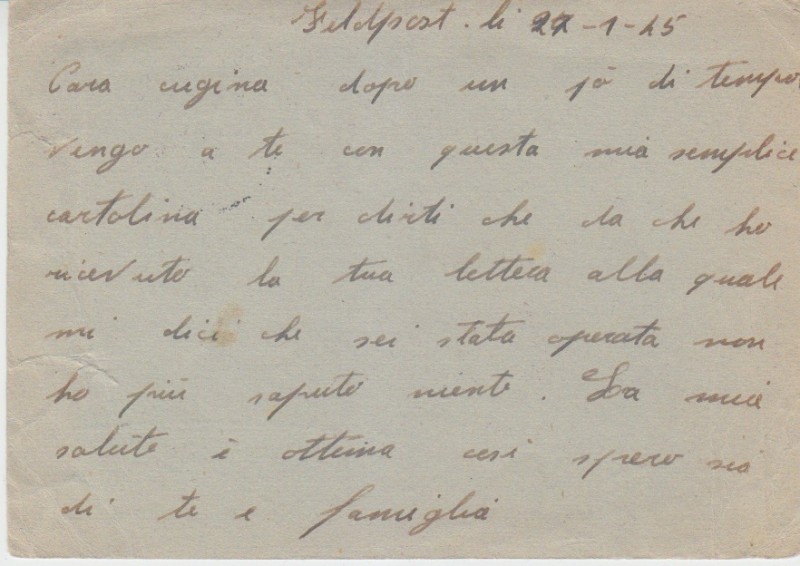 Feldpost. li 27-1-45
Cara cugina dopo un pò di tempo
vengo a te con questa mia semplice
cartolina per dirti che da che ho
ricevuto la tua lettera alla quale
mi dici che sei stata operata non
ho più saputo niente. La mia
salute è ottima cosi spero sia
di te e famiglia